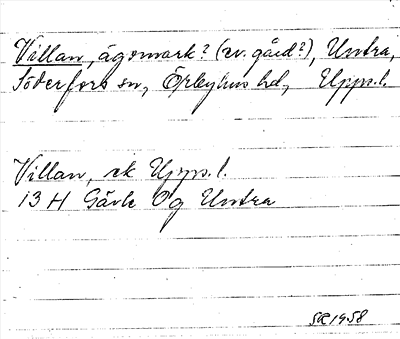 Villan, ägomark? (ev. gård?), Untra,
Söderfors sn, Örbyhus hd, Upps.l.
Villan, ek Upps.l.
13 H Gävle Og Untra
1958